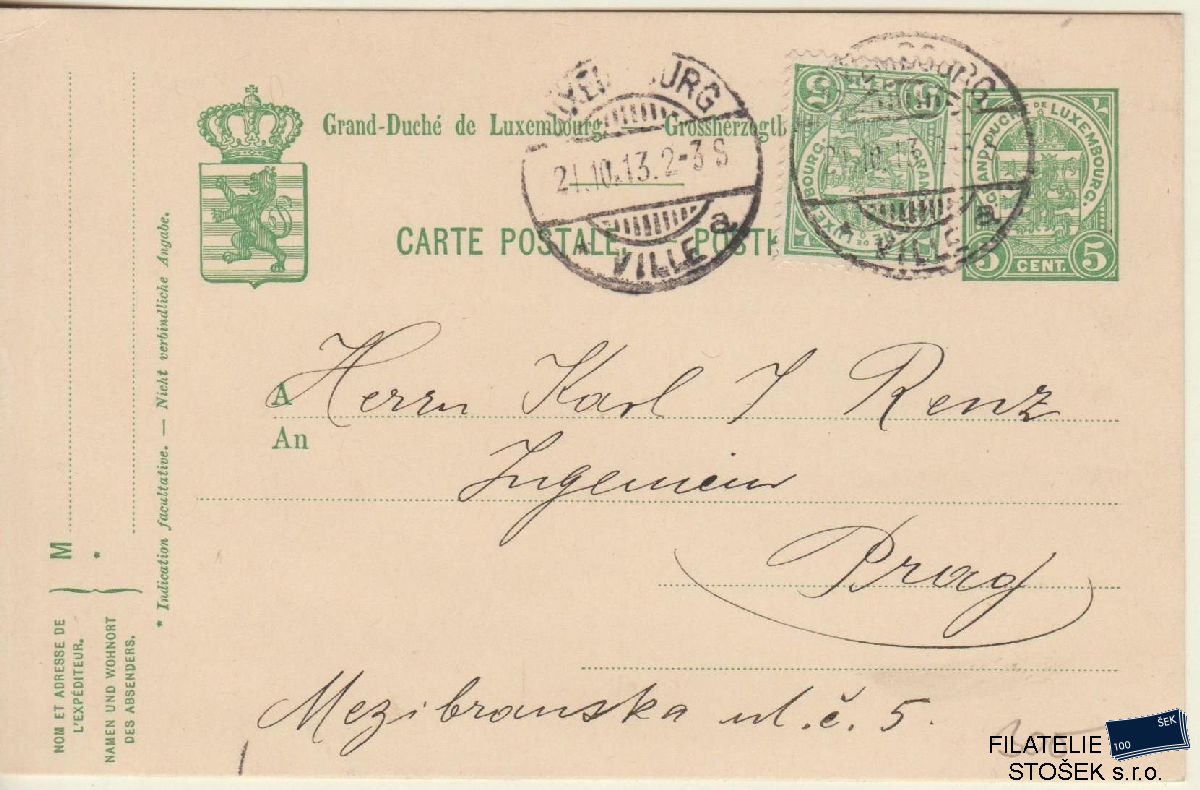 Grand-Duché de Luxembourg — Grossherzogt
CARTE POSTALE
LUXEMBOURG
21.10.13. 2-3 S
VILLE a
GRAND DUCHÉ DE LUXEMBOURG
5 CENT. 5
A Herrn Karl J Renz
An
Ingenieur
Prag
Mezibranska ul. č. 5.
* Indication facultative. — Nicht verbindliche Angabe.
M
*
NOM ET ADRESSE DE
L'EXPÉDITEUR.
NAMEN UND WOHNORT
DES ABSENDERS.
FILATELIE
STOŠEK s.r.o.
100 ŠEK